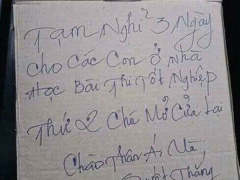 Tạm Nghỉ 3 Ngày
Cho Các Con ở Nhà
Học Bài Thi Tốt Nghiệp
Thứ 2 Chú Mở Cửa Lại
Chào Thân Ái Và
Quyết Thắng